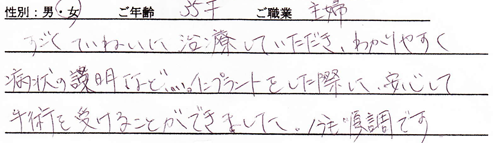 性別：男・女 ご年齢 35才 ご職業 主婦
すごくていねいに治療していただき、わかりやすく
病状の護明など…。インプラントをした際に、安心して
手術を受けることができました。今も順調です